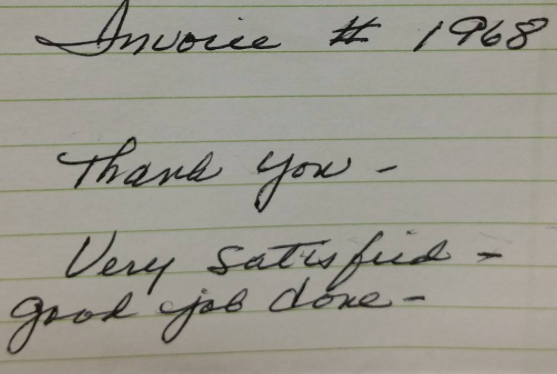 Invoice # 1968
Thank you -
Very satisfied -
good job done -